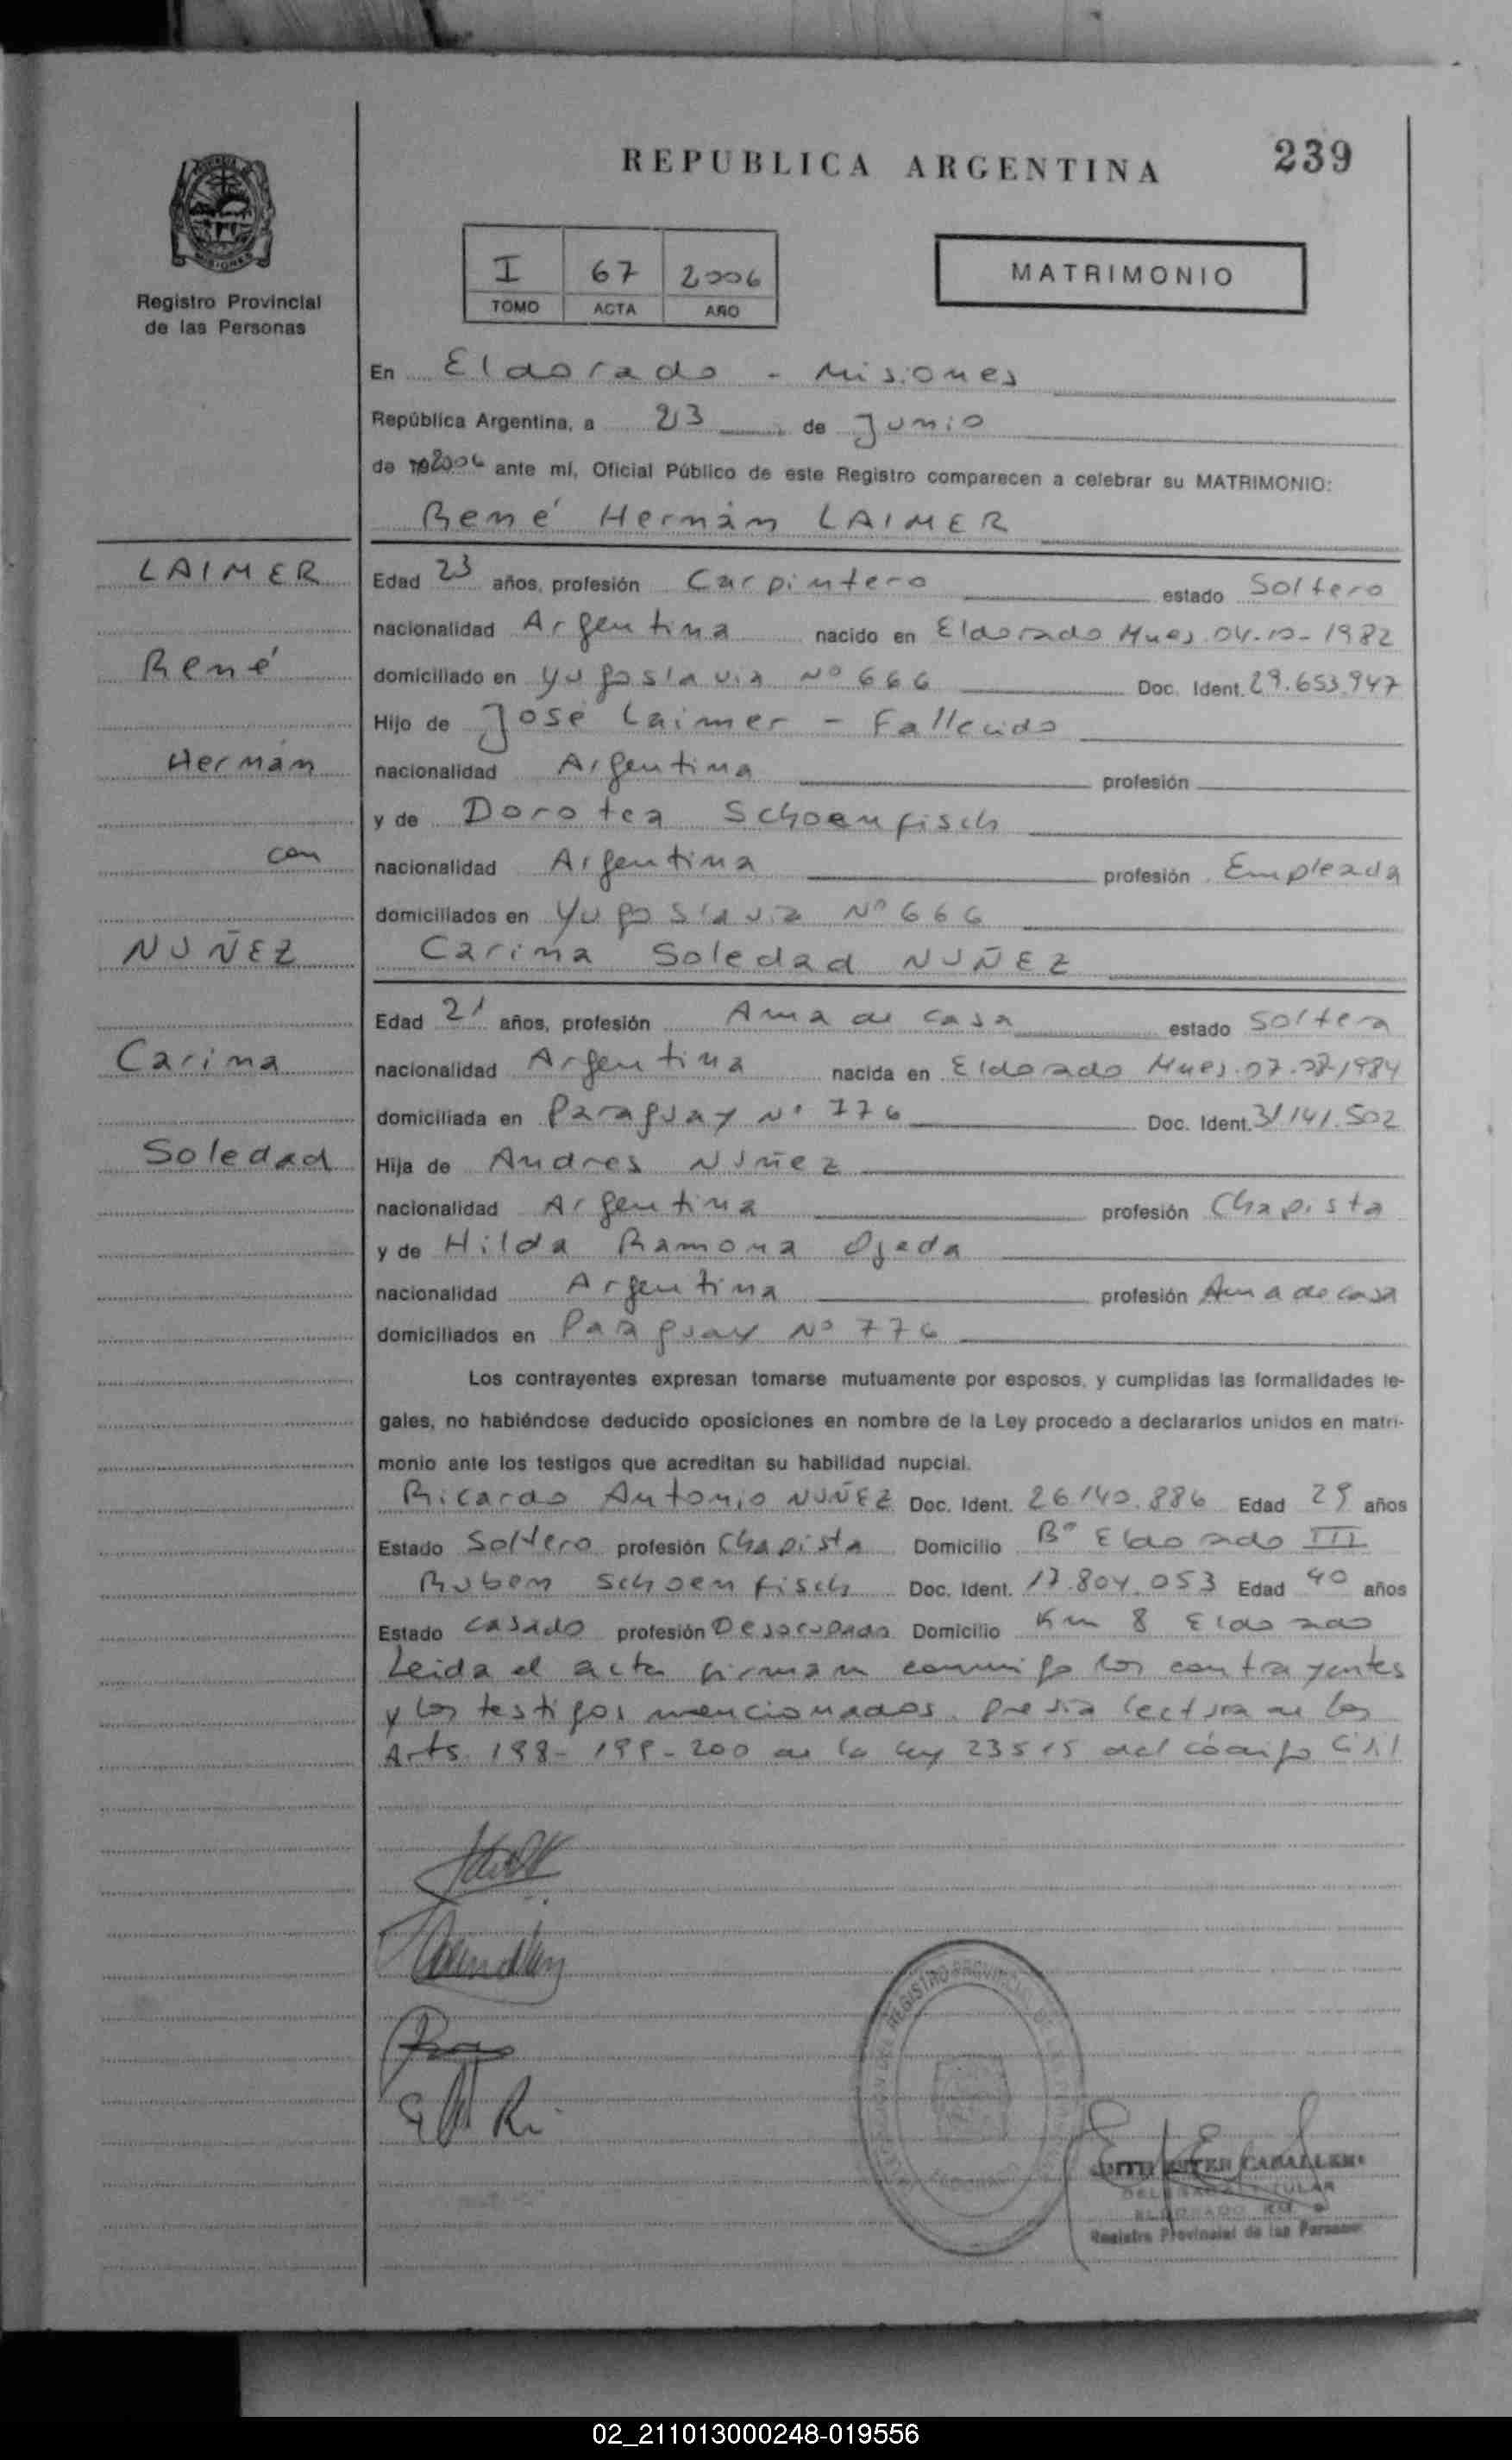 REPUBLICA ARGENTINA 239
I 67 2006
TOMO ACTA AÑO
MATRIMONIO
MISIONES
Registro Provincial
de las Personas
En Eldorado - Misiones
República Argentina, a 23 de Junio
de 2006 ante mí, Oficial Público de este Registro comparecen a celebrar su MATRIMONIO:
René Hernán LAIMER
LAIMER
Edad 23 años, profesión Carpintero estado Soltero
nacionalidad Argentina nacido en Eldorado Mnes. 04-10-1982
René
domiciliado en Yugoslavia Nº 666 Doc. Ident. 29.653.947
Hijo de José Laimer - Fallecido
Hernán
nacionalidad Argentina profesión
y de Dorotea Schoenfisch
con
nacionalidad Argentina profesión Empleada
domiciliados en Yugoslavia Nº 666
NUÑEZ
Carina Soledad NUÑEZ
Edad 21 años, profesión Ama de casa estado Soltera
Carina
nacionalidad Argentina nacida en Eldorado Mnes. 1984
domiciliada en Paraguay Nº 776 Doc. Ident. 31.141.502
Soledad
Hija de Andres Nuñez
nacionalidad Argentina profesión Chapista
y de Hilda Ramona Ojeda
nacionalidad Argentina profesión Ama de casa
domiciliados en Paraguay Nº 776
Los contrayentes expresan tomarse mutuamente por esposos, y cumplidas las formalidades le-
gales, no habiéndose deducido oposiciones en nombre de la Ley procedo a declararlos unidos en matri-
monio ante los testigos que acreditan su habilidad nupcial.
Ricardo Antonio NUÑEZ Doc. Ident. 26.140.886 Edad 29 años
Estado Soltero profesión Chapista Domicilio Bº Eldorado III
Ruben Schoenfisch Doc. Ident. 17.804.053 Edad 40 años
Estado Casado profesión Desocupado Domicilio Km 8 Eldorado
Leida el acta firman conmigo los contrayentes
y los testigos mencionados. Previa lectura de los
Arts. 198- 199- 200 de la ley 23515 del código Civil
REGISTRO PROVINCIAL DE LAS
CABALLERO
TITULAR
ELDORADO KM
Registro Provincial de las Personas
02_211013000248-019556